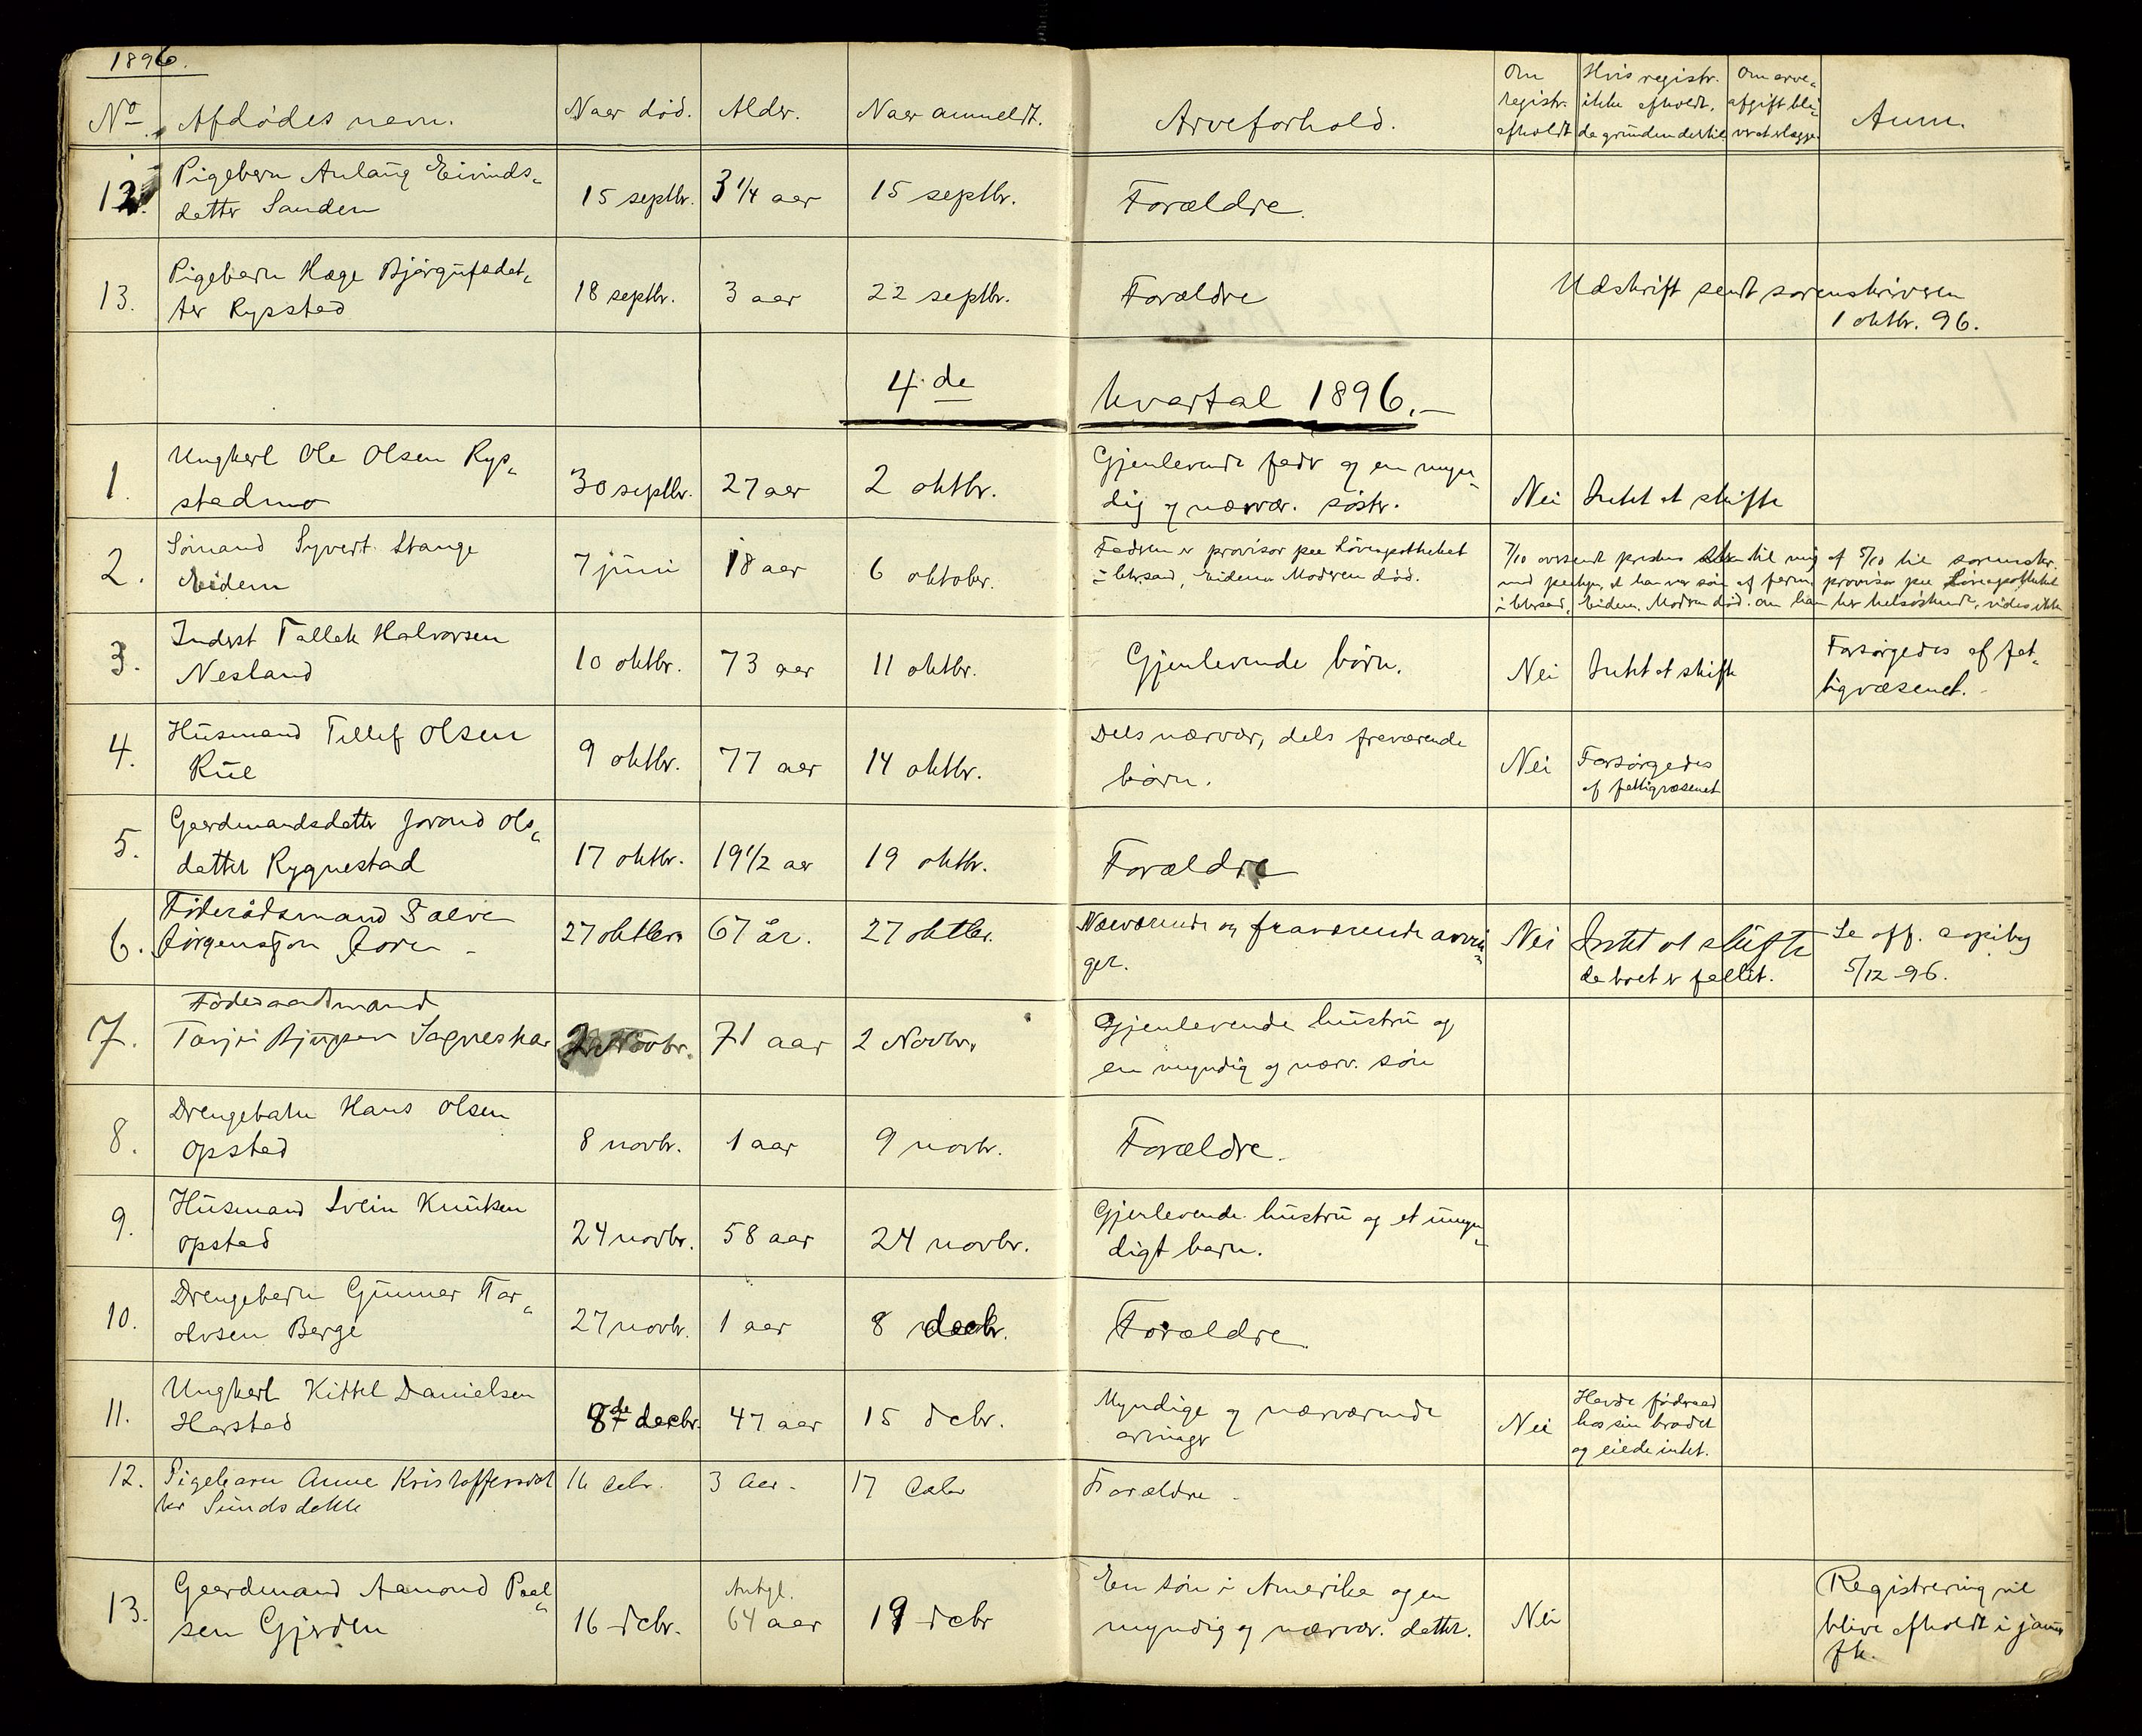 1896.
No Afdödes navn. Naar död. Alder. Naar anmeldt. Arveforhold. Om registr. afholdt Hvis registr. ikke afholdt, da grunden dertil Om arveafgift bliver at erlægge Anm.
12. Pigebarn Aslaug Eivinds-
datter Sanden 15 septbr. 3 1/4 aar 15 septbr. Forældre.
13. Pigebarn Hæge Bjørgufsdat-
ter Rysstad 18 septbr. 3 aar 22 septbr. Forældre Udskrift sendt sorenskriveren
1 oktbr. 96.
4.de kvartal 1896.
1. Ungkarl Ole Olsen Rys-
stadmo 30 septbr. 27 aar 2 oktbr. Gjenlevende fader og en myn-
dig og nærvær. søster. Nei Intet at skifte
2. Sømand Syvert Stange
Eidem 7 juni 18 aar 6 oktober. Faderen er provisor paa Løveapotheket
i Chrsand, Eidem. Moderen död.
7/10 oversendt til mig af 5/10 til sorenskr.
med paategn. at han var søn af provisor paa Løveapotheket
i Chrsand, Eidem. Modren död. Om han har helsøskende, vides ikke
3. Inderst Tallak Halvorsen
Nesland 10 oktbr. 73 aar 11 oktbr. Gjenlevende børn. Nei Intet at skifte Forsørgedes af fat-
tigvæsenet.
4. Husmand Tellef Olsen
Rue 9 oktbr. 77 aar 14 oktbr. Dels nærvær, dels fraværende
børn. Nei Forsørgedes
af fattigvæsenet
5. Gaardmandsdatter Jorond Ols-
datter Rygnestad 17 oktbr. 19 1/2 aar 19 oktbr. Forældre
6. Föderådsmand Salve
Jörgensson 27 oktbr. 67 år. 27 oktbr. Nærværende og fraværende arvin-
ger. Nei Intet at skifte
da boet er fallit. Se off. copibog
5/12 96.
7. Föderaadsmand
Torje 2 Novbr. 71 aar 2 Novbr. Gjenlevende hustru og
en myndig og nærv. søn
8. Drengebarn Hans Olsen
Opstad 8 novbr. 1 aar 9 novbr. Forældre.
9. Husmand Svein Knutsen
Opstad 24 novbr. 58 aar 24 novbr. Gjenlevende hustru og et umyn-
digt barn.
10. Drengebarn Gunnar Tar-
olvsen Berge 27 novbr. 1 aar 8 decbr. Forældre.
11. Ungkarl Kittel Danielsen
Harstad 8de decbr. 47 aar 15 dcbr. Myndige og nærværende
arvinger Nei Havde föderaad
hos sin broder
og eiede intet.
12. Pigebarn Anne Kristoffersdat
ter 16 dcbr. 3 aar. 17 dcbr Forældre
13. Gaardmand Aamond Paal-
sen Gjerden 16 dcbr. Antgl.
64 aar 19 dcbr En søn i Amerika og en
myndig og nærvær. datter. Nei Registrering vil
blive afholdt i januar
fk.